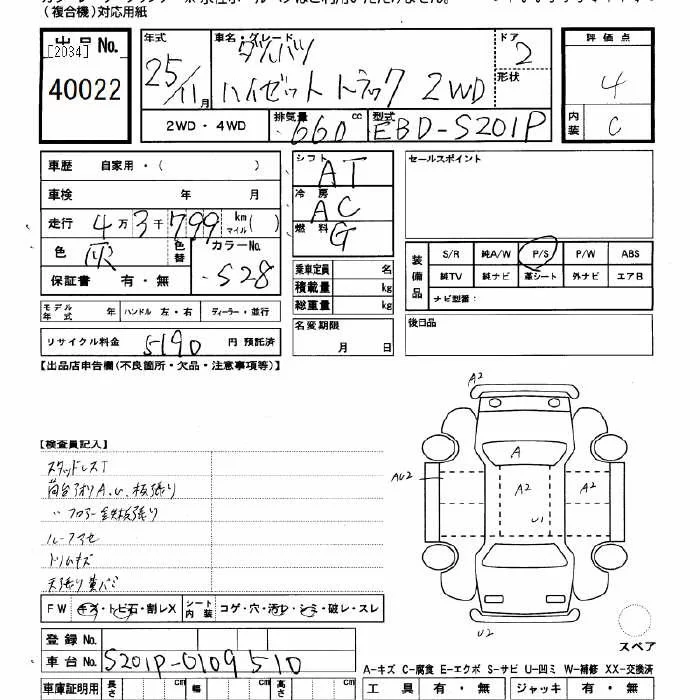 (複合機)対応用紙
出品No.
[2034]
40022
年式
25/11月
車名・グレード
ダイハツ
ハイゼットトラック 2WD
ドア
2
形状
評価点
4
内装
C
2WD・4WD
排気量
660
cc
型式
EBD-S201P
車歴 自家用・( )
車検 年 月
走行 4万3千799 km マイル( )
色 灰
色替
カラーNo.
S28
保証書 有・無
シフト
AT
冷房
AC
燃料
G
乗車定員 名
積載量 kg
総重量 kg
名変期限
月 日
セールスポイント
装備品
S/R 純A/W P/S P/W ABS
純TV 純ナビ 革シート 外ナビ エアB
ナビ型番:
後日品
モデル年式
年 ハンドル 左・右 ディーラー・並行
リサイクル料金 5190 円 預託済
【出品店申告欄(不良箇所・欠品・注意事項等)】
【検査員記入】
スタッドレスT
荷台アオリA、U、板張り
〃 フロアー鉄板張り
ルーフアセ
ドリムキズ
天張り黄バミ
A2
A
AU2
A2
A2
U1
U2
スペア
FW キズ・トビ石・割レX
シート内装 コゲ・穴・汚レ・シミ・破レ・スレ
登録No.
車台No. S201P-0109510
車庫証明用 長さ cm 幅 cm 高さ cm
A-キズ C-腐食 E-エクボ S-サビ U-凹ミ W-補修 XX-交換済
工具 有・無 ジャッキ 有・無